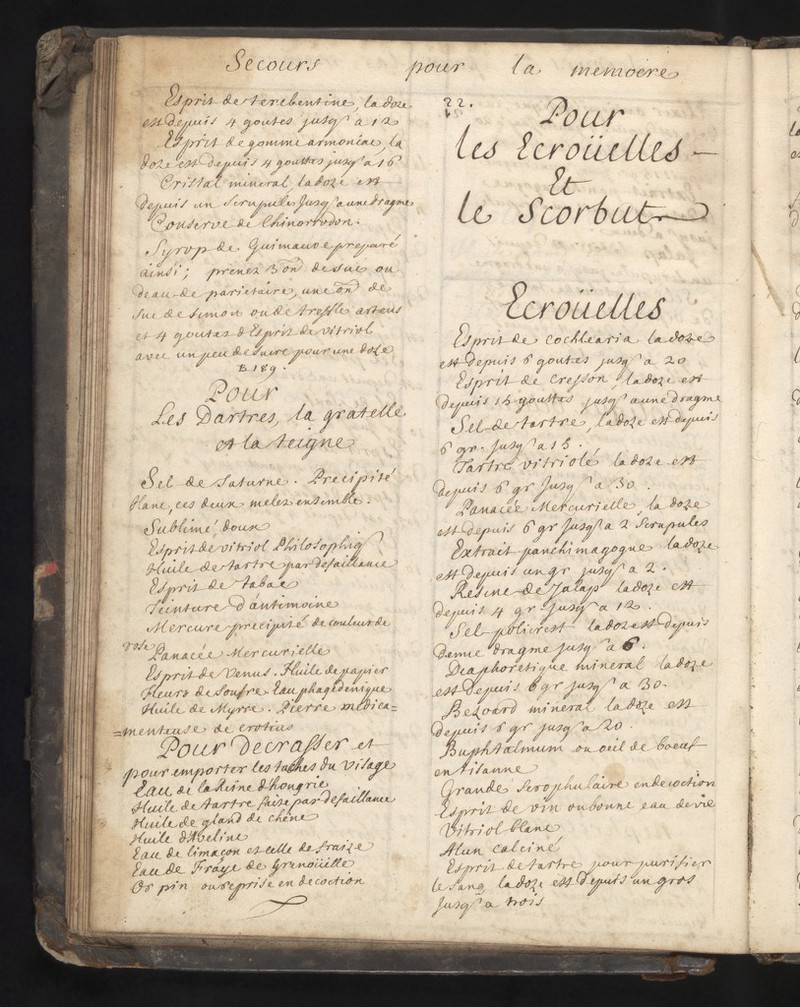 Secours pour la memoere
Esprit de terebentine, la doze
est depuis 4 goutes jusq' a 12
Esprit de gomme armoniac, la
doze est depuis 4 gouttes jusq' a 16
Cristal mineral la doze est
depuis un scrupule jusq' a une dragme
Conserve de Chinorrodon.
Syrop de Guimauve preparé
ainsi; prenez 3 on de suc ou
de au de parietaire, une on de
suc de Limon ou de treffle
et 4 goutes d'Esprit de vitriol
avec un peu de sucre pour une doze
189.
Pour
Les Dartres, la gratelle
et la teigne
Sel de Saturne. Precipité
blanc, ces deux melez ensemble.
Sublimé doux
Esprit de vitriol Philosophiq
Huile de tartre par defaillance
Esprit de tabac
Teinture d'antimoine
Mercure precipité de couleur de
rose
Panacée Mercurielle
Esprit de Venus. Huile de papier
fleurs de soufre. Eau phagedenique
Huile de Myrre. Pierre medica=
=menteuse de crotius
Pour Decrasser et
pour emporter les taches du visage
Eau de la Reine d'hongrie
Huile de tartre faite par defaillance
Huile de gland de chêne
Huile d'Aveline
Eau de limaçon et celle de fraize
Eau de Fraye de Grenoüille
Or pin en decoction
22.
Pour
les Ecroüelles
Et
le Scorbut
Ecroüelles
Esprit de cochlearia la doze
est depuis 6 goutes jusq' a 20
Esprit de Cresson, la doze est
depuis 15 gouttes jusq' a une dragme
Sel de tartre, la doze est depuis
6 gr. jusq' a 15.
Tartre vitriolé la doze est
depuis 6 gr jusq' a 30.
Panacée Mercurielle, la doze
est depuis 6 gr jusq' a 2 Scrupules
Extrait panchimagogue la doze
est depuis un gr jusq' a 2.
Resine de Jalap la doze est
depuis 4 gr jusq' a 12.
Sel policrest la doze est depuis
demie dragme jusq' a 6.
Diaphoretique mineral la doze
est depuis 6 gr jusq' a 30.
Bezoard mineral la doze est
depuis 6 gr jusq' a 20.
Buphtalmum ou oeil de boeuf
en tisanne
Grande Scrophulaire en decoction
Esprit de vin ou bonne eau de vie
Vitriol blanc
Alun calciné
Esprit de tartre pour purifier
le sang la doze est depuis un gros
Jusq' a trois